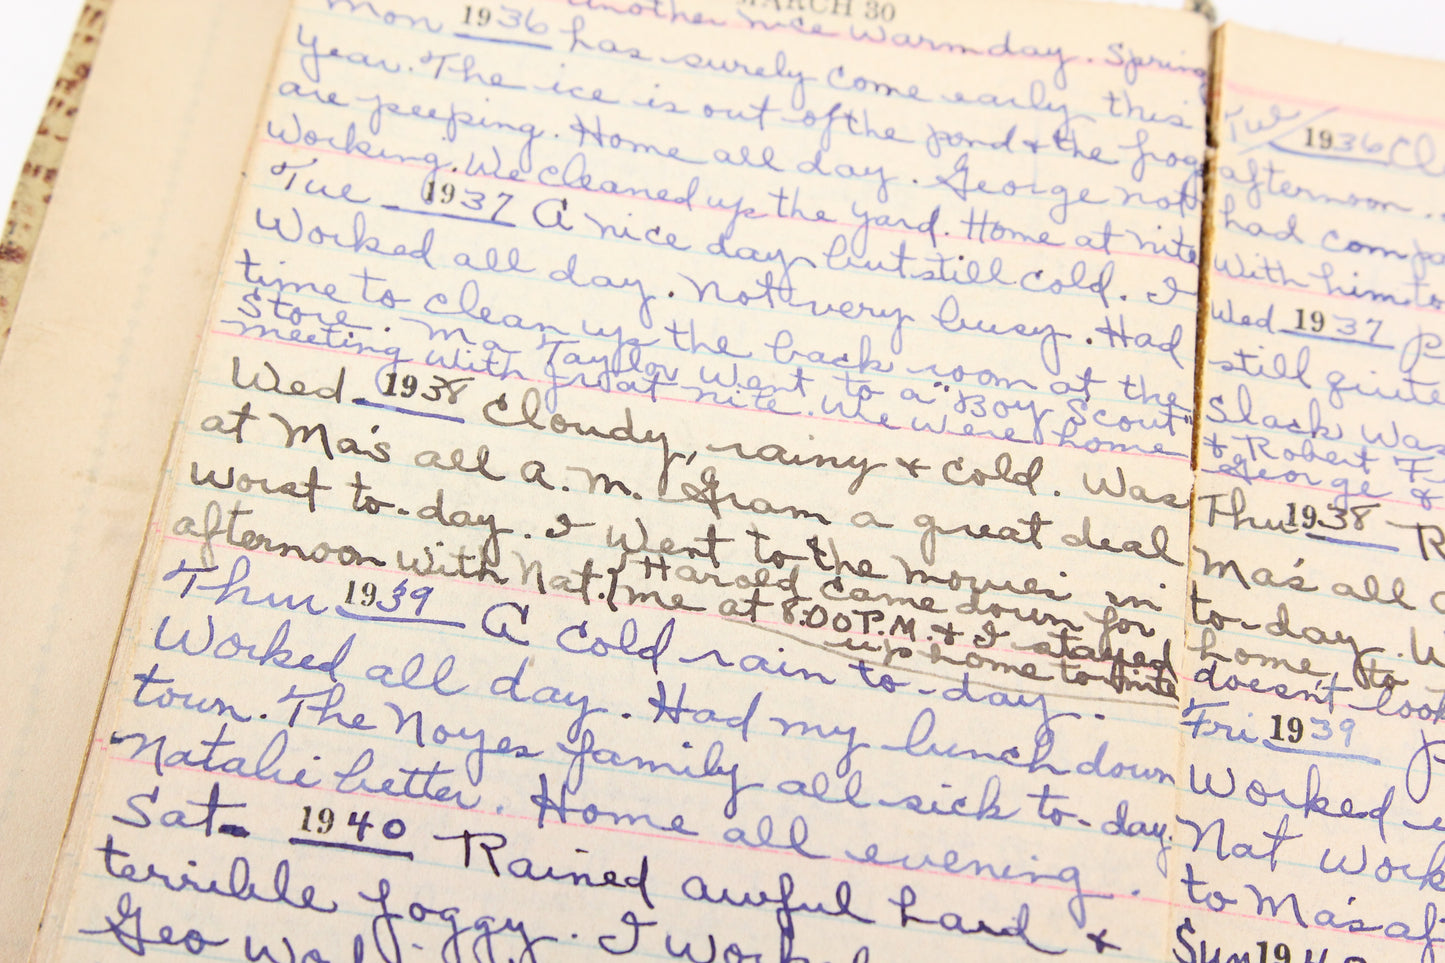 MARCH 30
Mon 1936 Another nice warm day. Spring
has surely come early this
year. The ice is out of the pond & the frogs
are peeping. Home all day. George not
working. We cleaned up the yard. Home at nite
Tue 1937 A nice day but still cold. I
worked all day. Not very busy. Had
time to clean up the back room at the
store. Ma Taylor went to a "Boy Scout"
meeting with Fran at nite. We were home
Wed 1938 Cloudy, rainy & cold. Was
at Ma's all a.m. Gram a great deal
worst to-day. I went to the movies in
afternoon with Nat. {Harold came down for
me at 8:00 P.M. & I stayed
up home to-nite
Thur 1939 A cold rain to-day.
Worked all day. Had my lunch down
town. The Noyes family all sick to-day.
Natalie better. Home all evening.
Sat- 1940 Rained awful hard &
terrible foggy. I
Geo
Tue 1936
afternoon.
had
with him to
Wed 1937
still quite
Slack was
& Robert
George &
Thu 1938
Ma's all
to-day.
home, to
doesn't look
Fri 1939
Worked
Nat
to Ma's
Sun 1940